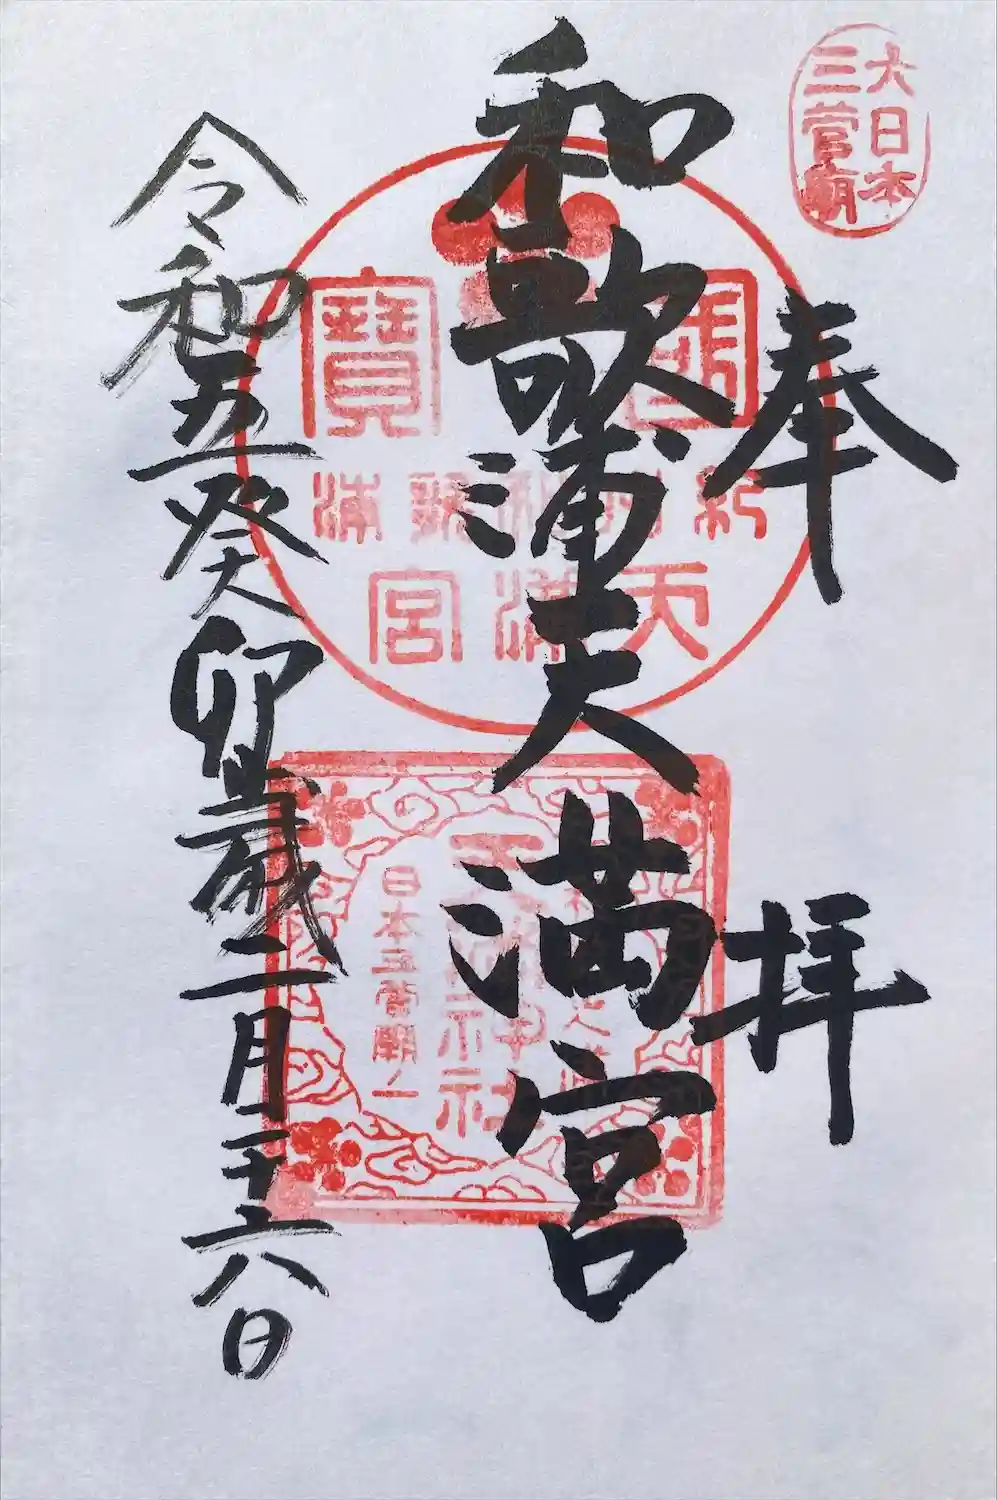 大日本
三菅廟
奉拝
和歌浦天満宮
令和五癸卯歳二月二十六日
國寶
紀州和歌浦
天満宮
天満神社
日本三菅廟ノ一